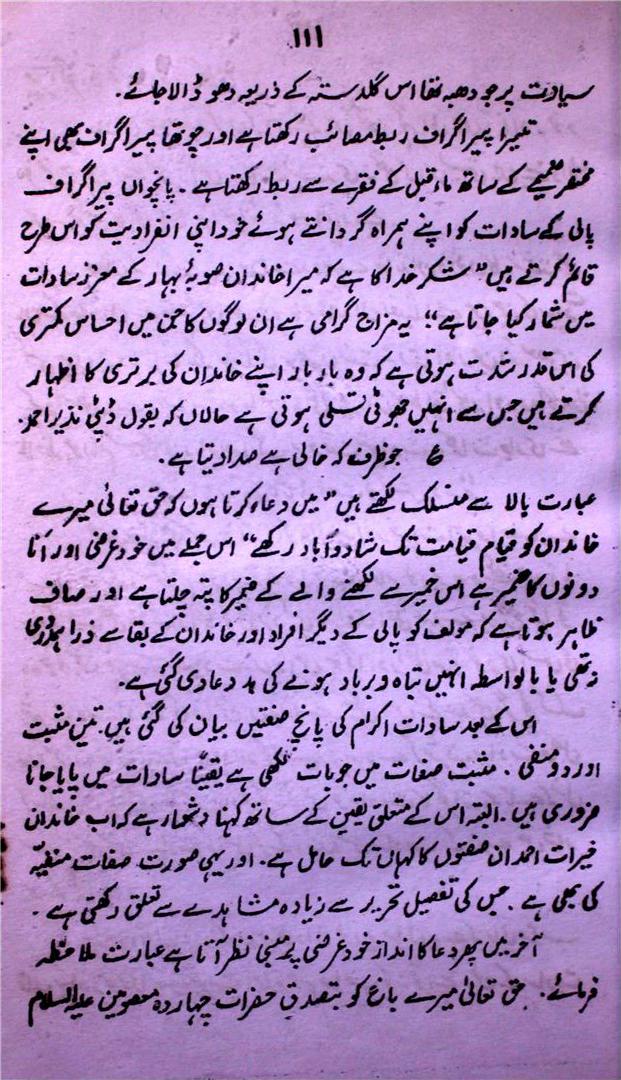 ۱۱۱
سیادت پر جو دھبہ تھا اس گلدستہ کے ذریعہ دھو ڈالا جائے۔
تیسرا پیراگراف ربط مصائب رکھتا ہے اور چوتھا پیراگراف بھی اپنے
مختصر ضمیمے کے ساتھ ماقبل کے فقرے سے ربط رکھتا ہے۔ پانچواں پیراگراف
پالی کے سادات کو اپنے ہمراہ گردانتے ہوئے خود اپنی انفرادیت کو اس طرح
قائم کرتے ہیں "شکر خدا کا ہے کہ میرا خاندان صوبۂ بہار کے معزز سادات
میں شمار کیا جاتا ہے" یہ مزاج گرامی ہے ان لوگوں کا جن میں احساس کمتری
کی اس قدر شدت ہوتی ہے کہ وہ بار بار اپنے خاندان کی برتری کا اظہار
کرتے ہیں جس سے انہیں جھوٹی تسلی ہوتی ہے حالاں کہ بقول ڈپٹی نذیر احمد۔
ع جو ظرف کہ خالی ہے صدا دیتا ہے۔
عبارت بالا سے منسلک لکھتے ہیں "میں دعاء کرتا ہوں کہ حق تعالیٰ میرے
خاندان کو قیام قیامت تک شاد و آباد رکھے" اس جملے میں خود غرضی اور اَنا
دونوں کا خمیر ہے اس خمیر سے لکھنے والے کے ضمیر کا پتہ چلتا ہے اور صاف
ظاہر ہوتا ہے کہ مولف کو پالی کے دیگر افراد اور خاندان کے بقا سے ذرا ہمدردی
نہ تھی یا بالواسطہ انہیں تباہ و برباد ہونے کی بد دعا دی گئی ہے۔
اس کے بعد سادات اکرام کی پانچ صفتیں بیان کی گئی ہیں۔ تین مثبت
اور دو منفی۔ مثبت صفات میں جو بات لکھی ہے یقیناً سادات میں پایا جانا
ضروری ہیں۔ البتہ اس کے متعلق یقین کے ساتھ کہنا دشوار ہے کہ اب خاندان
خیرات احمد ان صفتوں کا کہاں تک حامل ہے۔ اور یہی صورت صفات منفیہ
کی بھی ہے۔ جس کی تفصیل تحریر سے زیادہ مشاہدے سے تعلق رکھتی ہے۔
آخر میں پھر دعا کا انداز خود غرضی پر مبنی نظر آتا ہے عبارت ملاحظہ
فرمائے۔ حق تعالیٰ میرے باغ کو بتصدق حضرات چہاردہ معصومین علیہ السلام